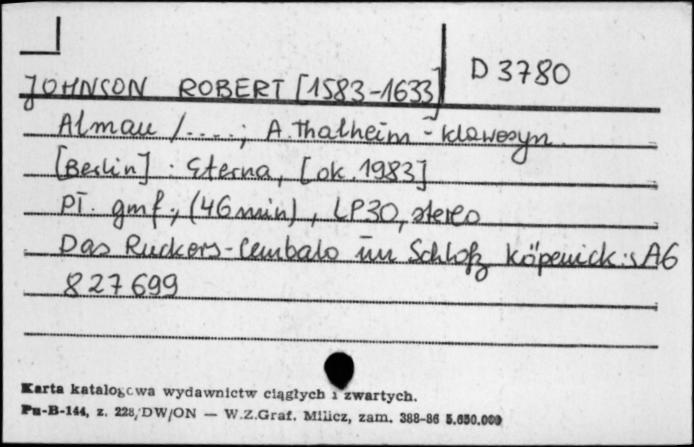 D 3780
JOHNSON ROBERT [1583-1633]
Alman /....; A. Thalheim - klawesyn.
[Berlin] : Eterna, [ok. 1983]
Pł. gmf., (46 min), LP30, stereo
Das Ruckers-Cembalo im Schloß Köpenick : sA6
827699
Karta katalogowa wydawnictw ciągłych i zwartych.
Pu-B-144, z. 228/DW/ON — W.Z.Graf. Milicz, zam. 388-86 5.650.000